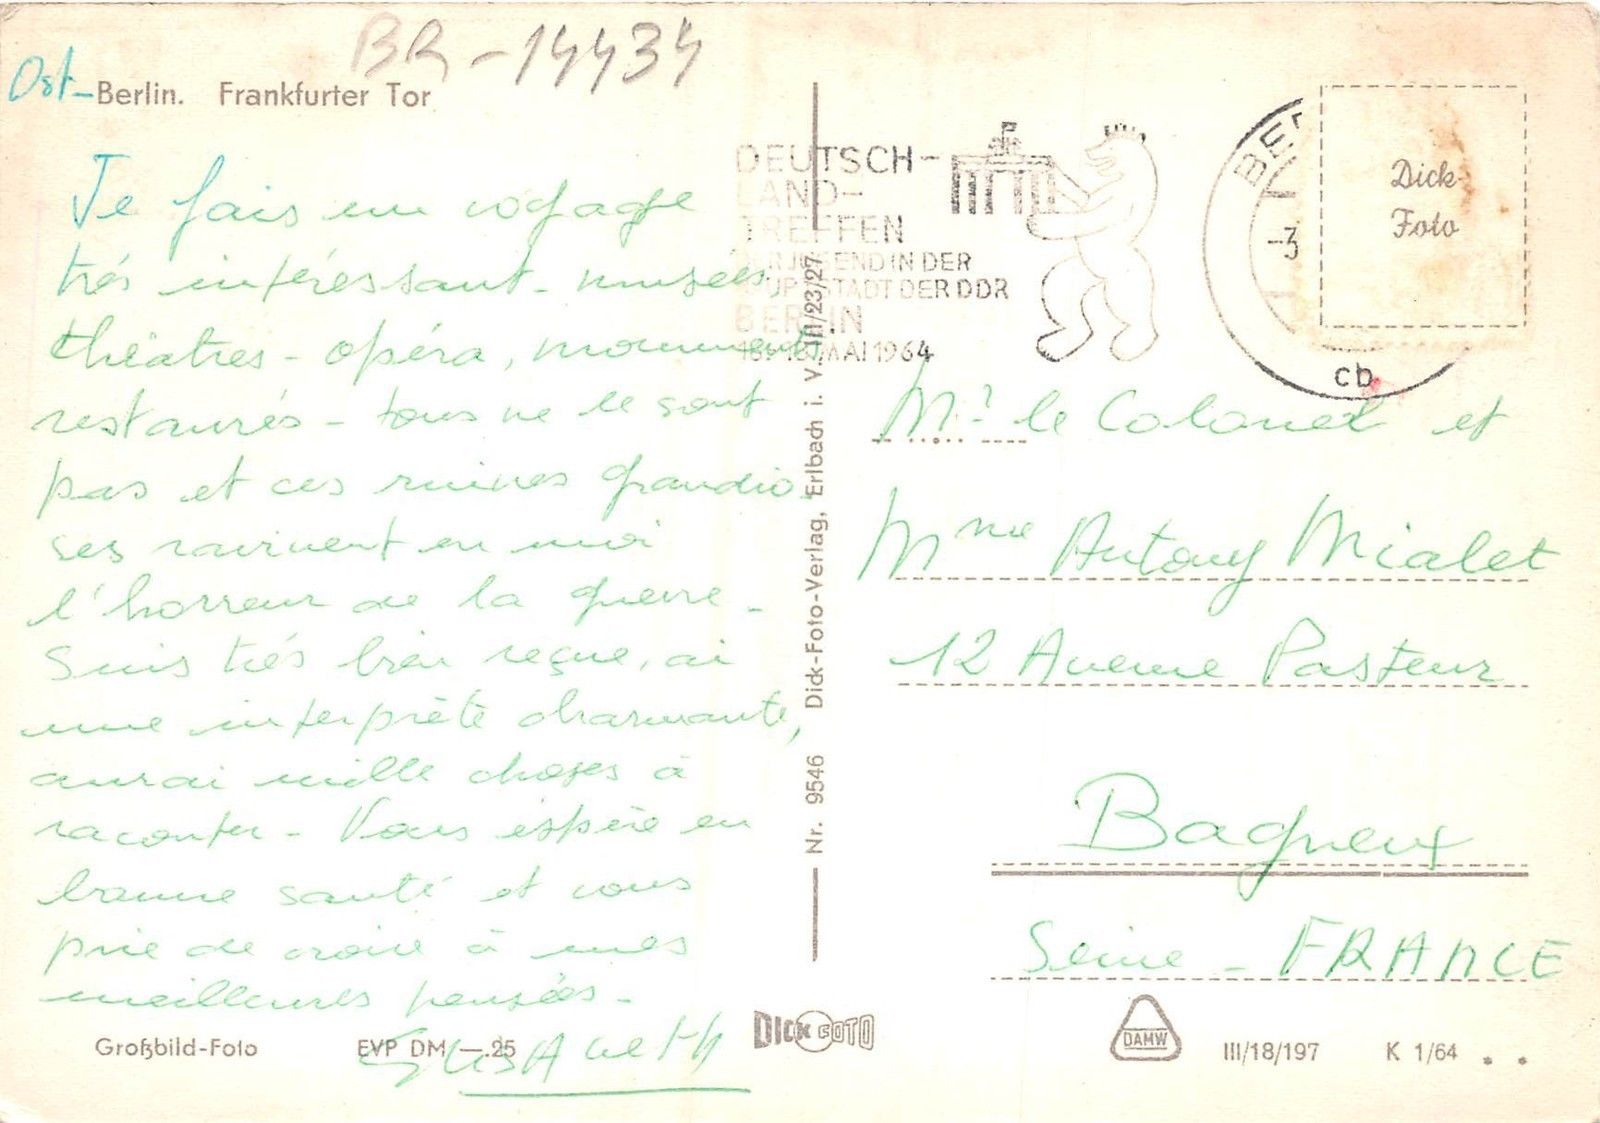 BR-14434
Ost-Berlin. Frankfurter Tor
Je fais un voyage
trés intéressant - musées
théâtres - opéra, monuments
restaurés - tous ne le sont
pas et ces ruines grandio
ses ravivent en moi
l'horreur de la guerre -
Suis trés bien reçue, ai
une interprète charmante,
aurai mille choses à
raconter - Vous espère en
bonne santé et vous
prie de croire à mes
meilleures pensées -
Großbild-Foto EVP DM -.25
Nr. 9546 Dick-Foto-Verlag, Erlbach i. V. III/23/27
DEUTSCH-
LAND-
TREFFEN
DER JUGEND IN DER
HAUPTSTADT DER DDR
BERLIN
MAI 1964
BER
-3
cb
Dick-
Foto
Mr le Colonel et
Mme Antony Mialet
12 Avenue Pasteur
Bagneux
Seine - FRANCE
DICK FOTO
DAMW
III/18/197 K 1/64